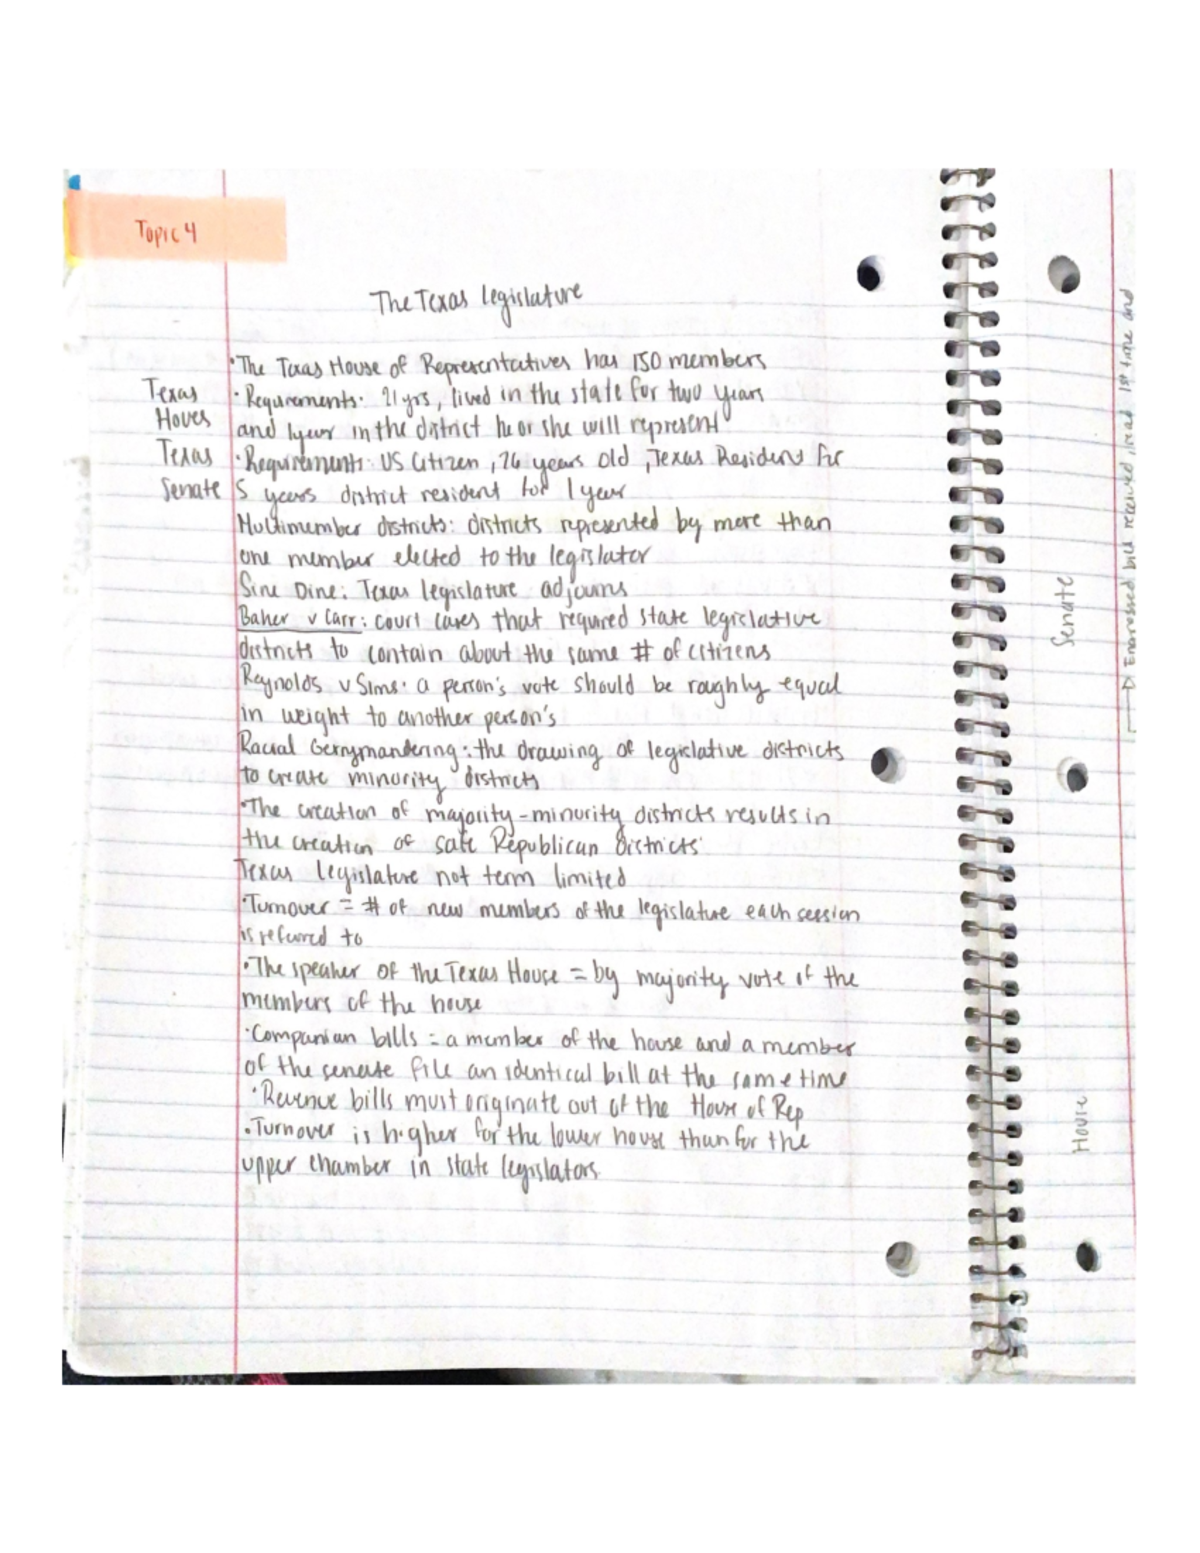 Topic 4
The Texas legislature
•The Texas House of Representatives has 150 members
Texas House
•Requirements: 21 yrs, lived in the state for two years
and 1 year in the district he or she will represent
Texas Senate
•Requirements: US Citizen, 26 years old, Texas Resident for
5 years district resident for 1 year
Multimember districts: districts represented by more than
one member elected to the legislator
Sine Dine: Texas legislature adjourns
Baker v Carr: court cases that required state legislative
districts to contain about the same # of citizens
Reynolds v Sims: a person's vote should be roughly equal
in weight to another person's
Racial Gerrymandering: the drawing of legislative districts
to create minority districts
•The creation of majority-minority districts results in
the creation of safe Republican districts
Texas legislature not term limited
•Turnover = # of new members of the legislature each session
is referred to
•The speaker of the Texas House = by majority vote of the
members of the house
•Companian bills = a member of the house and a member
of the senate file an identical bill at the same time
•Revenue bills must originate out of the House of Rep
•Turnover is higher for the lower house than for the
upper chamber in state legislators
Senate
House
Engrossed bill received, read 1st time and